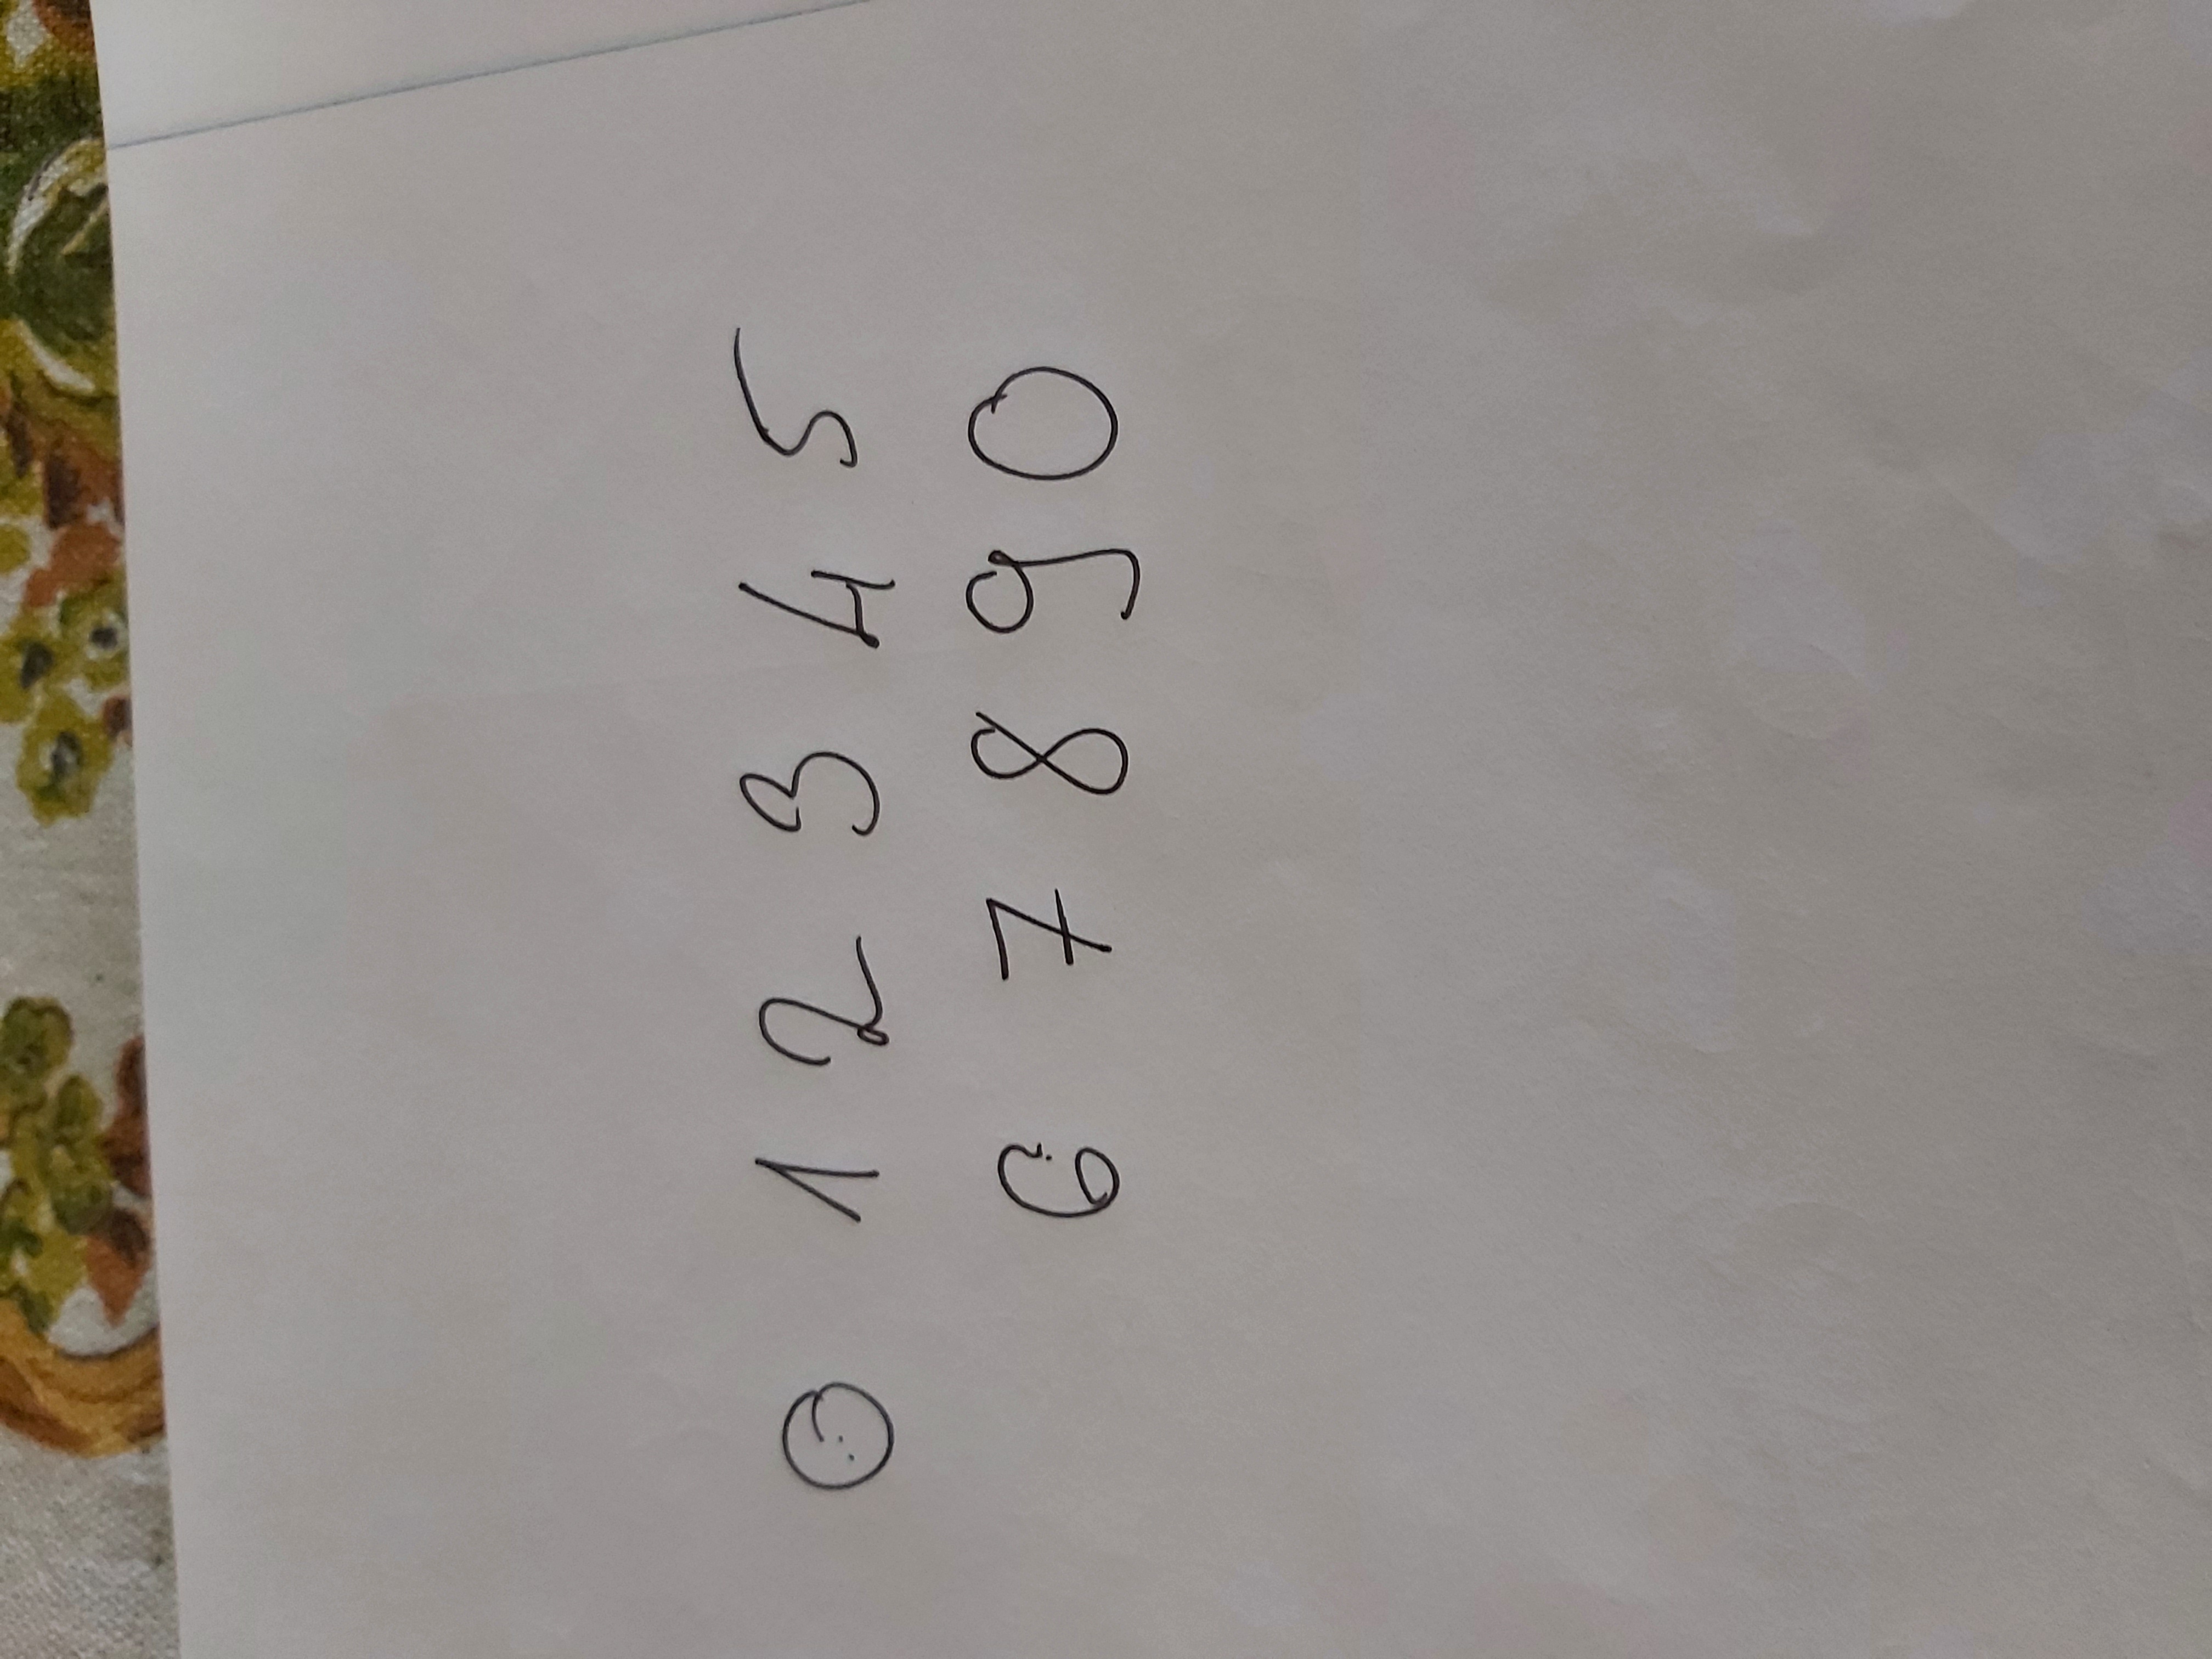 0 1 2 3 4 5
6 7 8 9 0